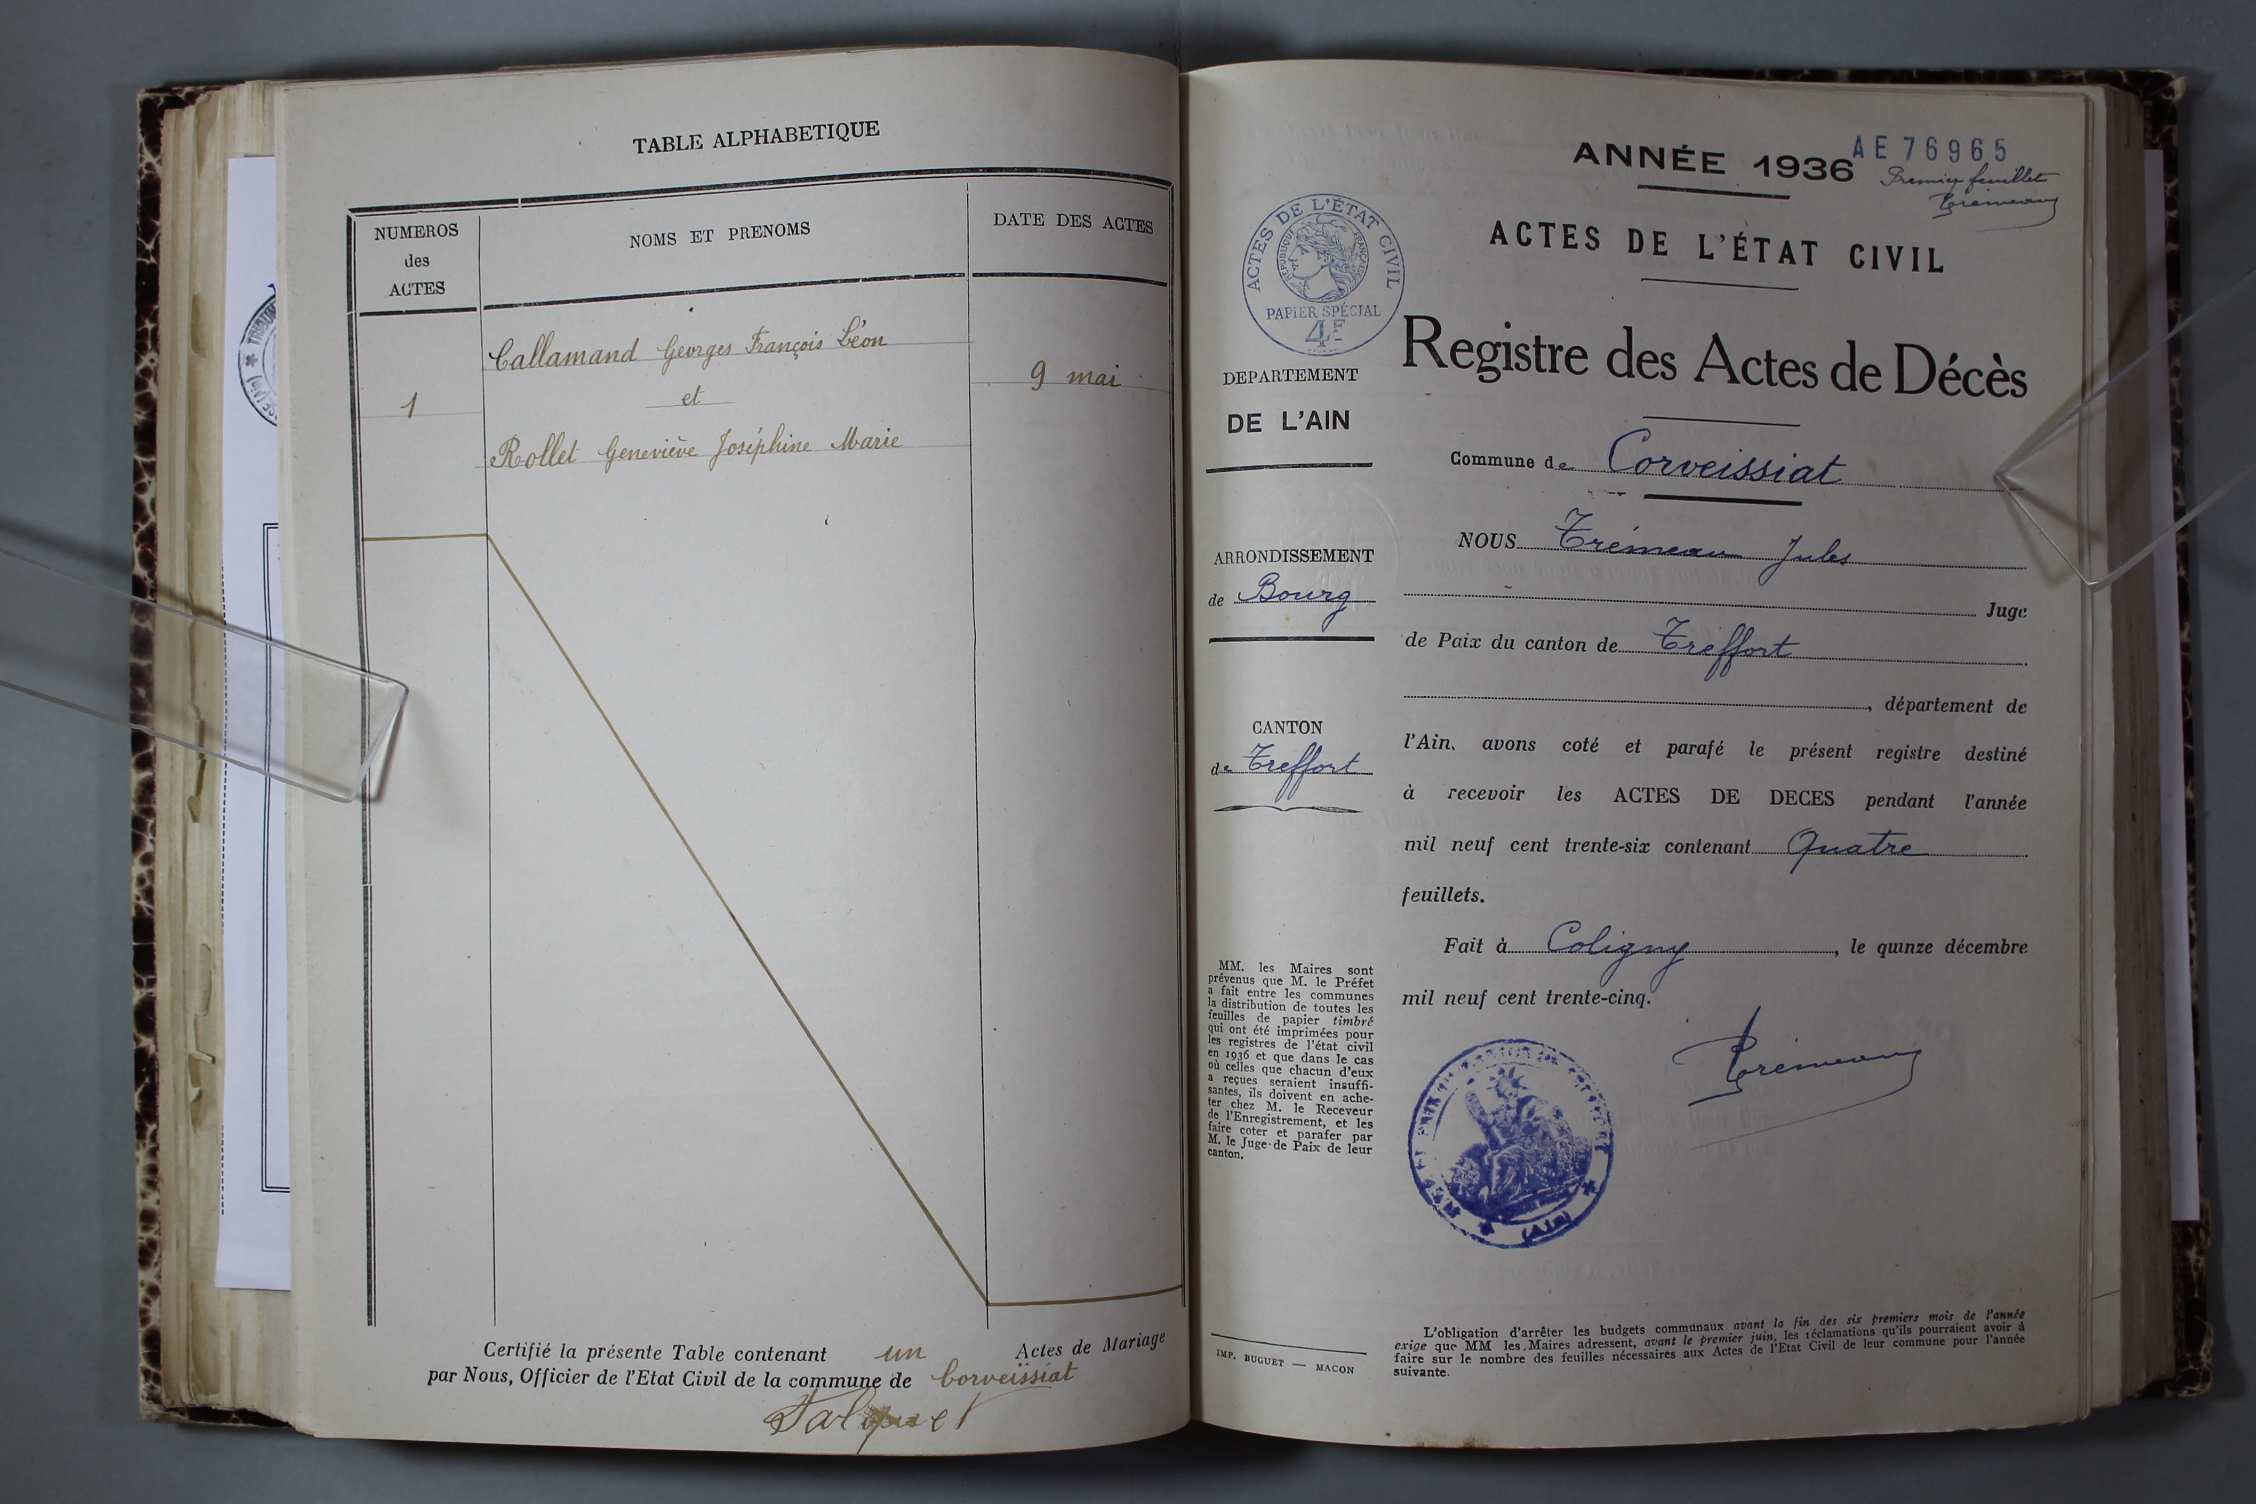 TABLE ALPHABETIQUE
NUMEROS
des
ACTES
NOMS ET PRENOMS
DATE DES ACTES
Callamand Georges François Léon
1
et
9 mai
Rollet Geneviève Joséphine Marie
Certifié la présente Table contenant un Actes de Mariage
par Nous, Officier de l'Etat Civil de la commune de Corveissiat
ANNÉE 1936
AE 76965
Premier feuillet
Trémeau
ACTES DE L'ÉTAT CIVIL
RÉPUBLIQUE FRANÇAISE
PAPIER SPÉCIAL
4F
ACTES DE L'ÉTAT CIVIL
Registre des Actes de Décès
DEPARTEMENT
DE L'AIN
ARRONDISSEMENT
de Bourg
CANTON
de Treffort
MM. les Maires sont
prévenus que M. le Préfet
a fait entre les communes
la distribution de toutes les
feuilles de papier timbré
qui ont été imprimées pour
les registres de l'état civil
en 1936 et que dans le cas
où celles que chacun d'eux
a reçues seraient insuffi-
santes, ils doivent en ache-
ter chez M. le Receveur
de l'Enregistrement, et les
faire coter et parafer par
M. le Juge de Paix de leur
canton.
IMP. BUGUET — MACON
Commune de Corveissiat
NOUS Trémeau Jules
Juge
de Paix du canton de Treffort
, département de
l'Ain, avons coté et parafé le présent registre destiné
à recevoir les ACTES DE DECES pendant l'année
mil neuf cent trente-six contenant Quatre
feuillets.
Fait à Coligny, le quinze décembre
mil neuf cent trente-cinq.
Trémeau
(AIN)
L'obligation d'arrêter les budgets communaux avant la fin des six premiers mois de l'année
exige que MM les Maires adressent, avant le premier juin, les réclamations qu'ils pourraient avoir à
faire sur le nombre des feuilles nécessaires aux Actes de l'Etat Civil de leur commune pour l'année
suivante.